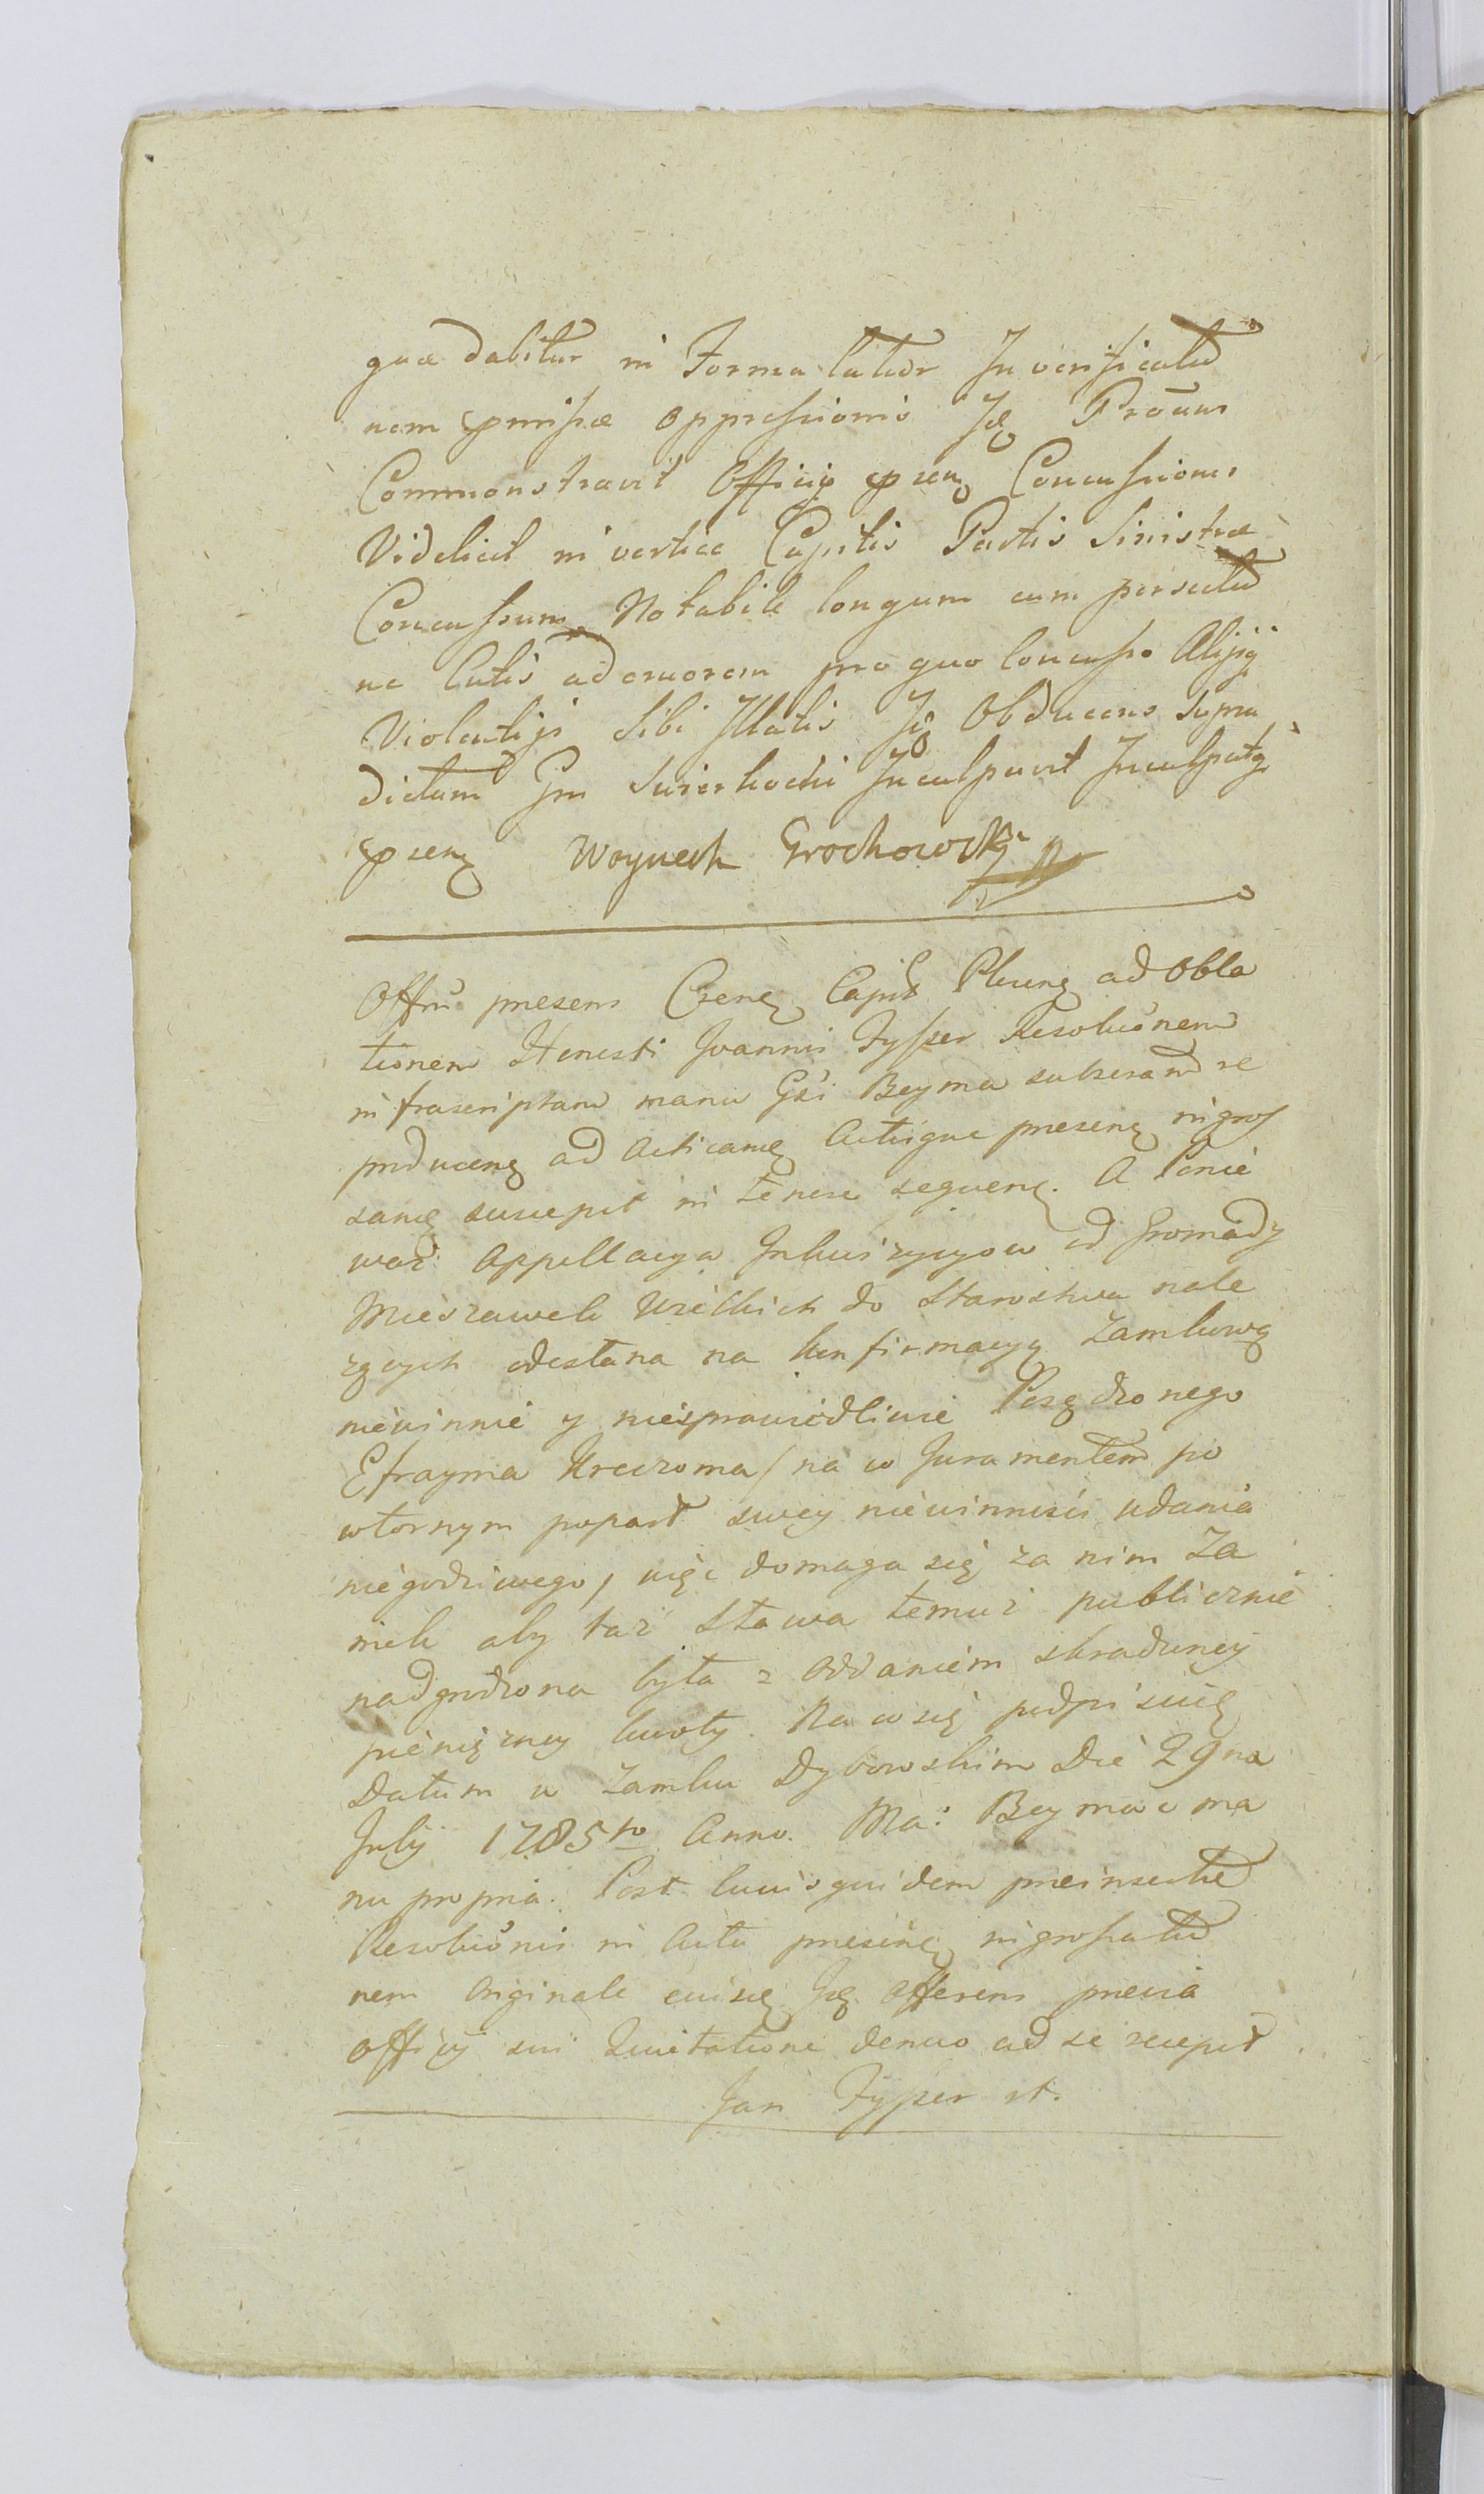 quæ dabitur in Forma latiõr In verificatiõ
nem pmissæ oppressionis Jdẽ Protunc
Commonstravit Officio psenti Concussiones
Videlicet in vertice Capitis Partis Sinistræ
Concussum Notabile longum cum persectiõ
ne Cutis ad cruorem pro quo Concusso Alijsq
Violentijs Sibi Illatis Jdẽ Obducens Supra
dictum Gm Swierkocki Inculpavit Inculpatq
psentq Woyciech Grochowski
Offm presens Csene Capit ad Obla
tionem Honesti Joannis Fysser Resolu̇onem
infrascriptam manu Gsi Beyma subscriptam re
producenẽ ad Acticanẽ Actisque presenẽ ingros
sanẽ suscepit in tenore sequenẽ. A Ponie
waz Appellacya Inkwizycyow od Gromady
Mieszawek Wielkich do Starostwa nale
zących odesłana na konfirmacyą Zamkową
niewinnie y niesprawiedliwie Posądzonego
Efrayma Kreczoma / na co Juramentem po
wtornym poparł swey niewinnosci udania
niegodziwego, więc domaga się za nim Za
mek aby taż Sława temuż publicznie
nadgrodzona była z oddaniem skradzioney
pienięzney kwoty. Na co się podpisuię
Datum w Zamku Dybowskim Die 29na
July 1785to Anno. Ma: Beyma c ma
nu propria. Post cuius quidem preinsertæ
Resolu̇onis in Acta presenẽ ingrossatiõ
nem Originale eiusdẽ Jdẽ offerens previa
officij sui Quietatione denuo ad se recepit
Jan Fysser st.